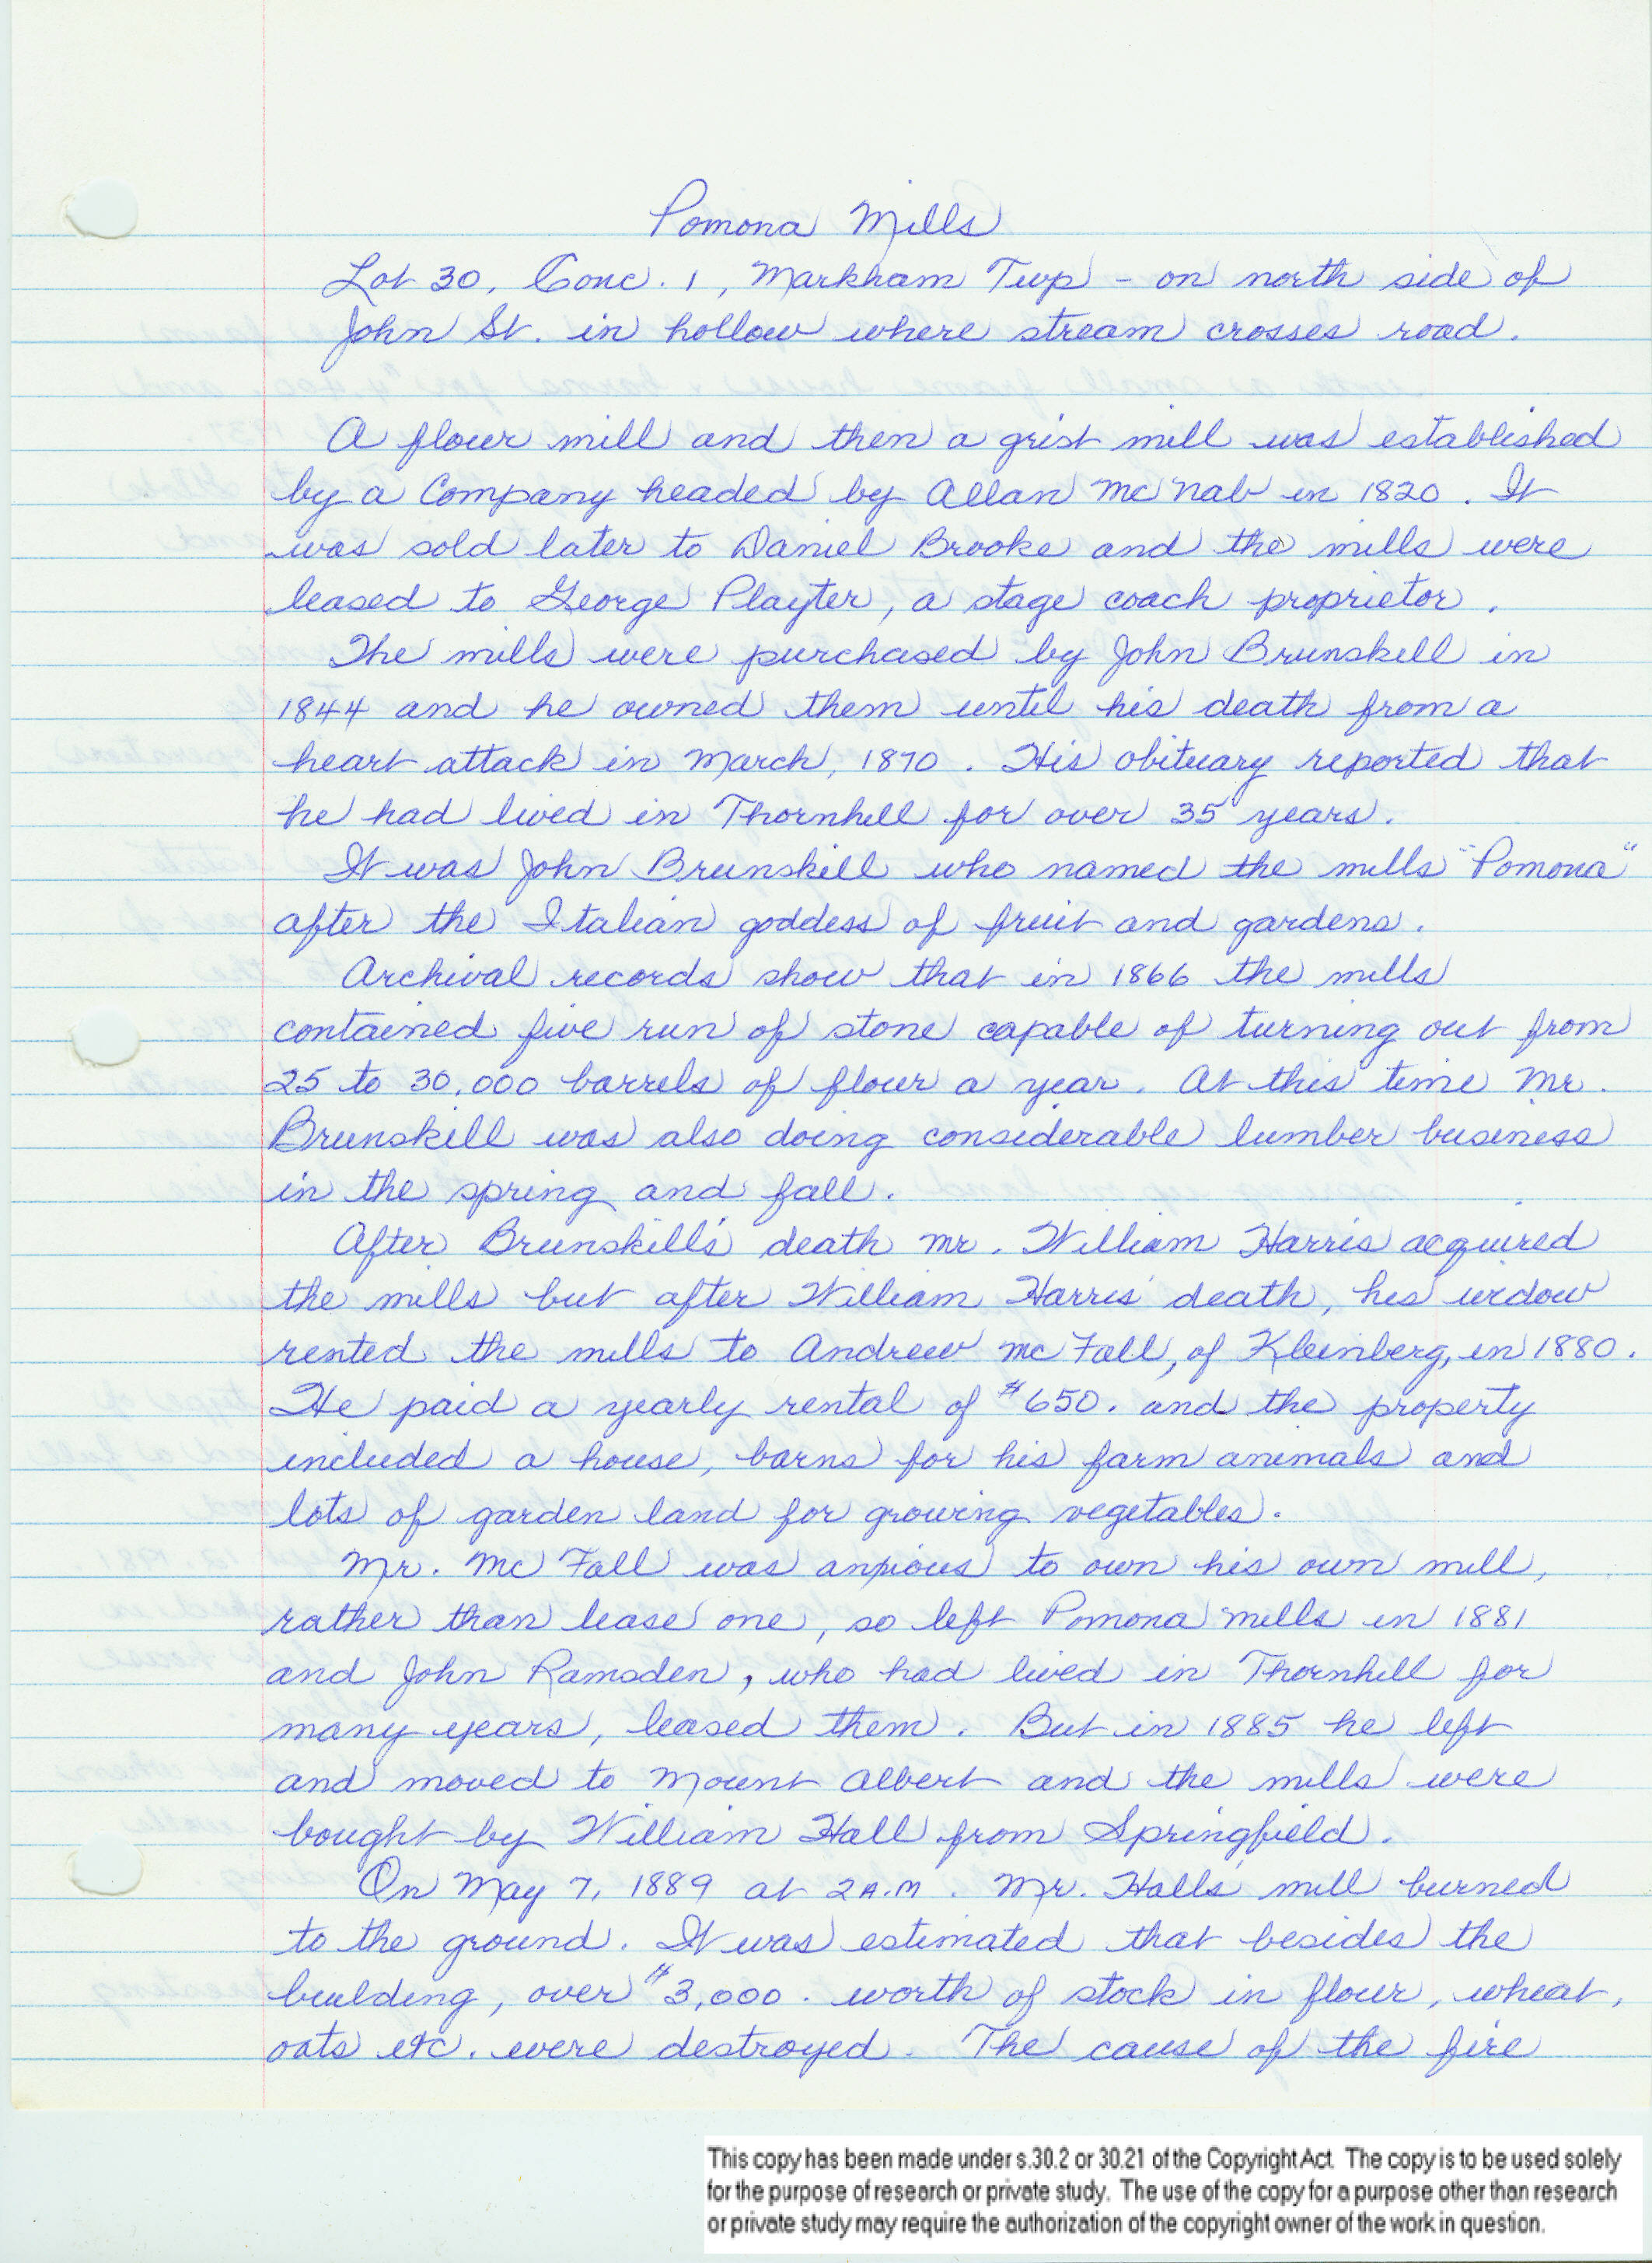 Pomona Mills
Lot 30, Conc. 1, Markham Twp - on north side of
John St. in hollow where stream crosses road.
A flour mill and then a grist mill was established
by a Company headed by Allan McNab in 1820. It
was sold later to Daniel Brooke and the mills were
leased to George Playter, a stage coach proprietor.
The mills were purchased by John Brunskill in
1844 and he owned them until his death from a
heart attack in March, 1870. His obituary reported that
he had lived in Thornhill for over 35 years.
It was John Brunskill who named the mills "Pomona"
after the Italian goddess of fruit and gardens.
Archival records show that in 1866 the mills
contained five run of stone capable of turning out from
25 to 30,000 barrels of flour a year. At this time Mr.
Brunskill was also doing considerable lumber business
in the spring and fall.
After Brunskill's death Mr. William Harris acquired
the mills but after William Harris' death, his widow
rented the mills to Andrew McFall, of Kleinberg, in 1880.
He paid a yearly rental of $650. and the property
included a house, barns for his farm animals and
lots of garden land for growing vegetables.
Mr. McFall was anxious to own his own mill,
rather than lease one, so left Pomona Mills in 1881
and John Ramsden, who had lived in Thornhill for
many years, leased them. But in 1885 he left
and moved to Mount Albert and the mills were
bought by William Hall from Springfield.
On May 7, 1889 at 2 A.M. Mr. Hall's mill burned
to the ground. It was estimated that besides the
building, over $3,000. worth of stock in flour, wheat,
oats etc. were destroyed. The cause of the fire
This copy has been made under s.30.2 or 30.21 of the Copyright Act. The copy is to be used solely
for the purpose of research or private study. The use of the copy for a purpose other than research
or private study may require the authorization of the copyright owner of the work in question.